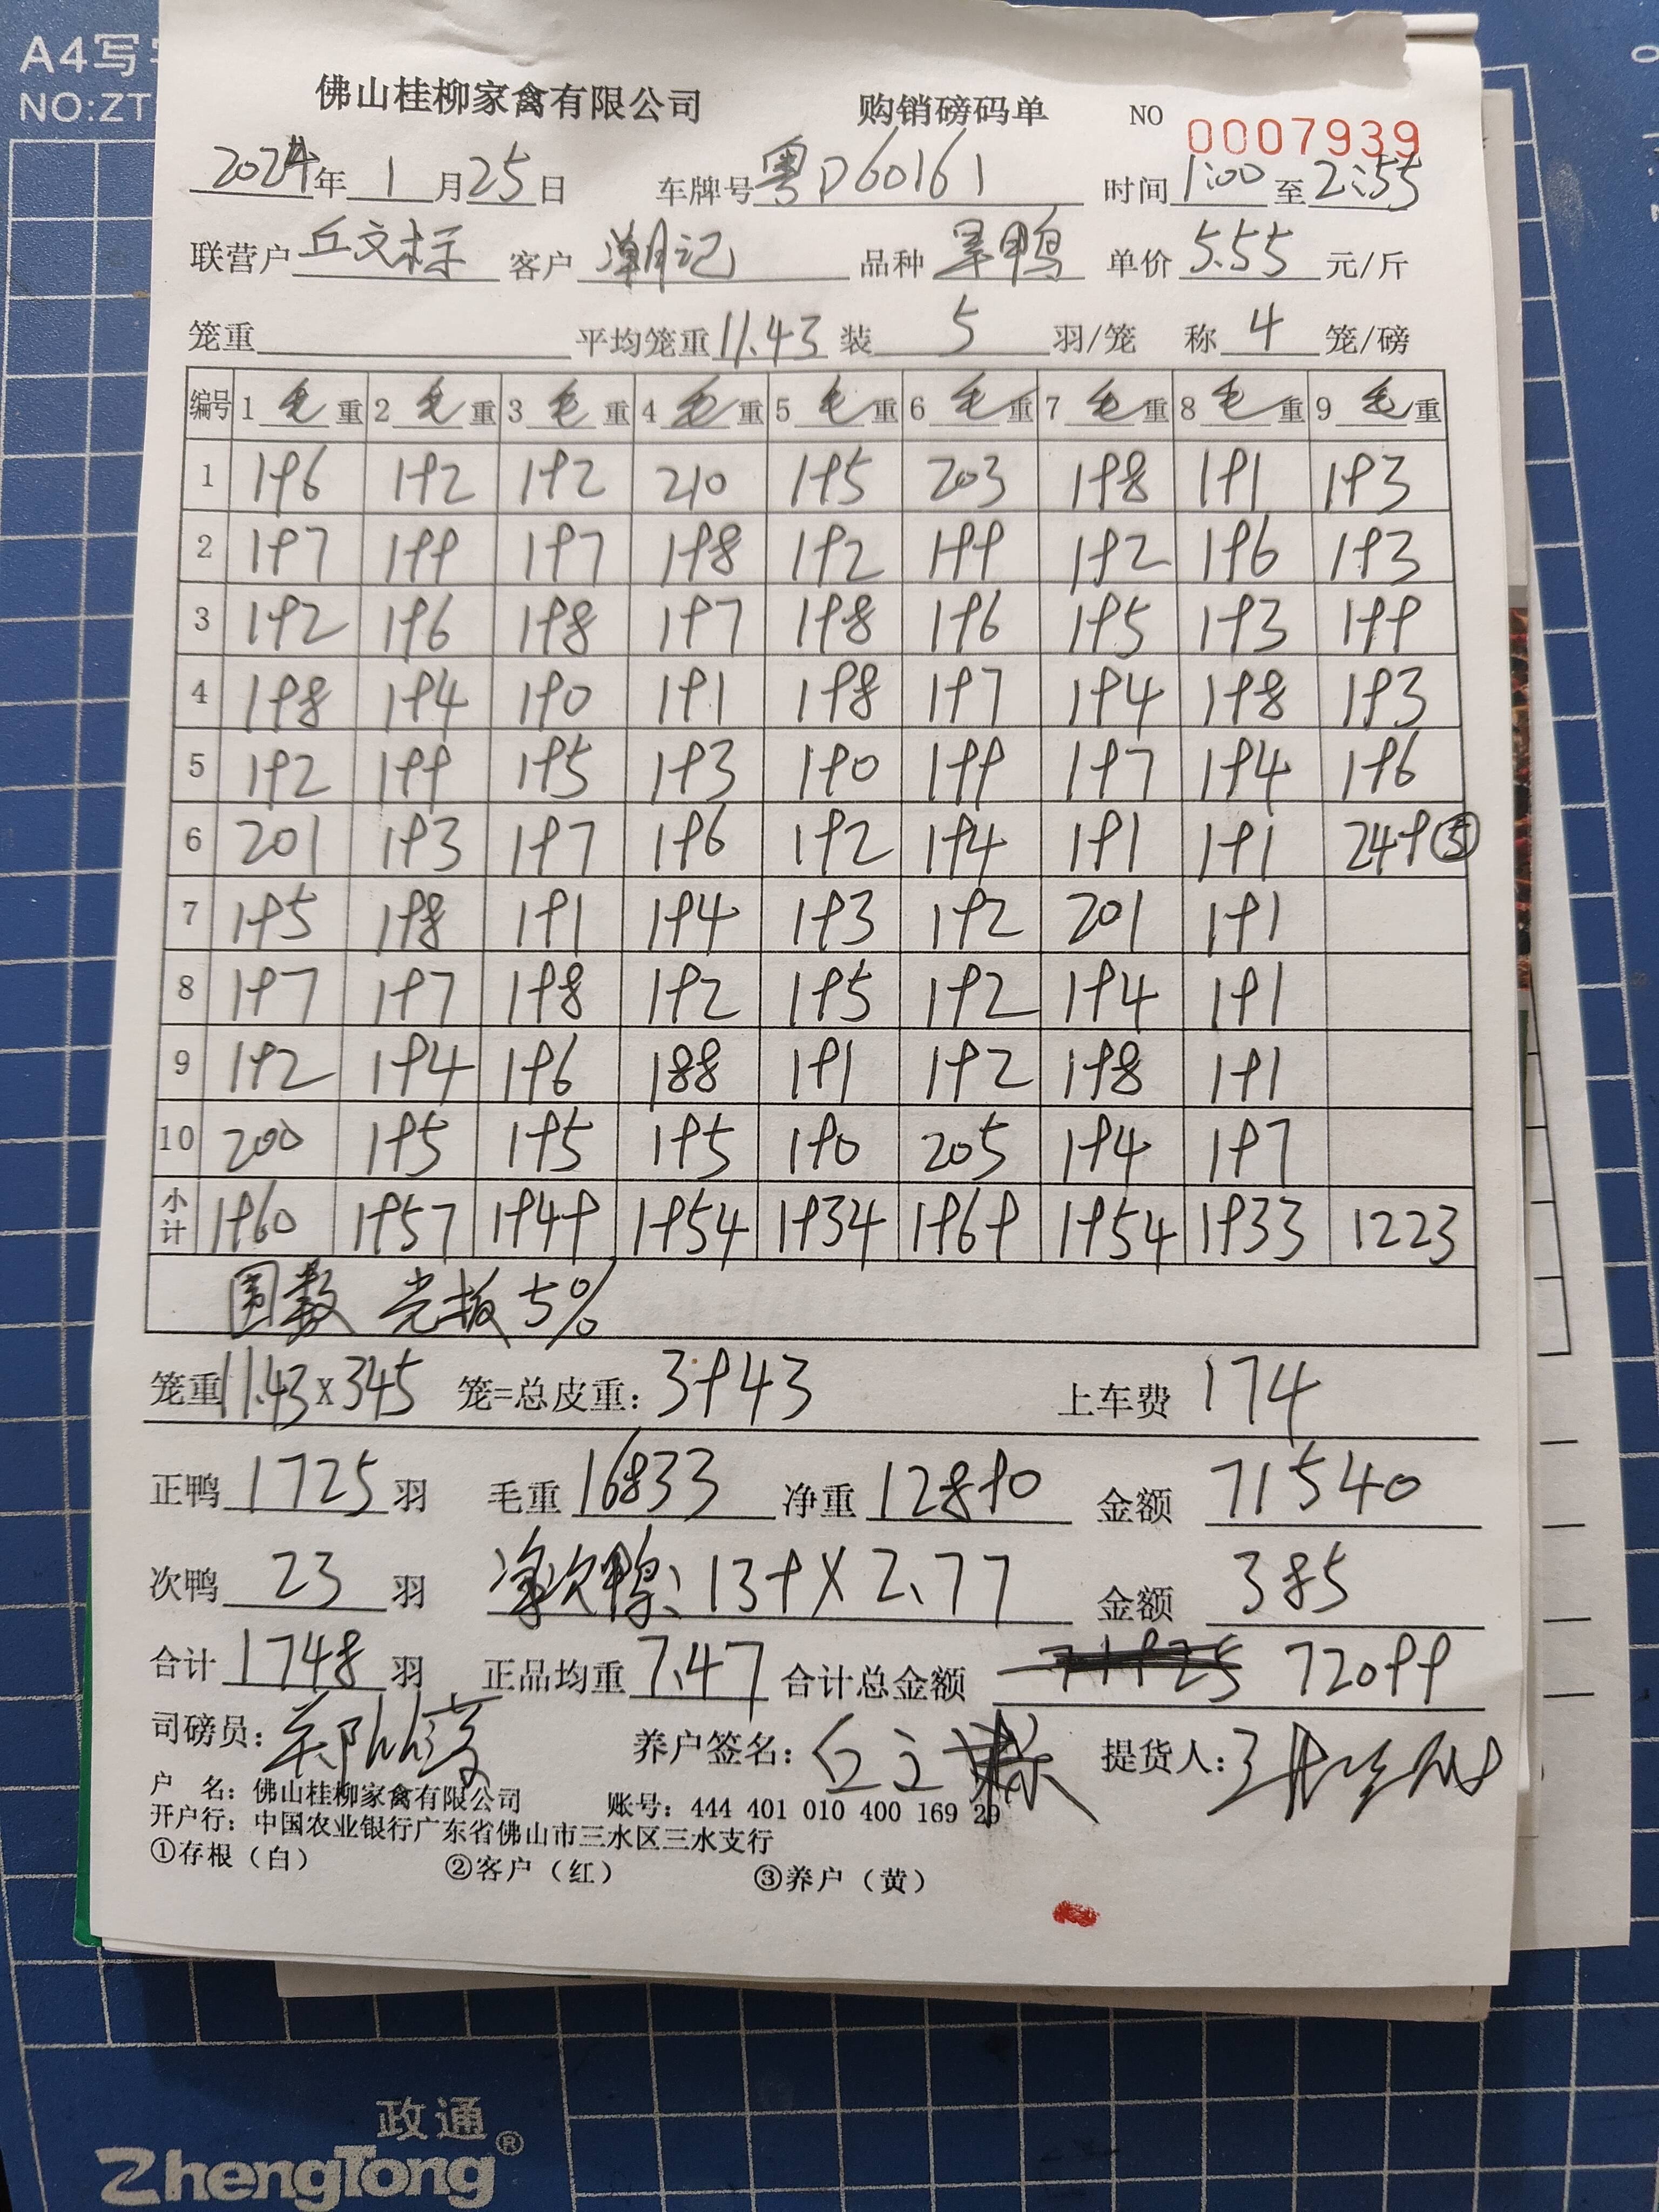 A4写
NO:ZT
佛山桂柳家禽有限公司 购销磅码单 NO 0007939
2024年 1 月25日 车牌号粤D60161 时间1:00至2:55
联营户丘文标 客户 潮记 品种 旱鸭 单价5.55元/斤
笼重 平均笼重11.43 装 5 羽/笼 称 4 笼/磅
编号 1毛重 2毛重 3毛重 4毛重 5毛重 6毛重 7毛重 8毛重 9毛重
1 196 192 192 210 195 203 198 191 193
2 197 199 197 198 192 199 192 196 193
3 192 196 198 197 198 196 195 193 199
4 198 194 190 191 198 197 194 198 193
5 192 199 195 193 190 199 197 194 196
6 201 193 197 196 192 194 191 191 249⑤
7 195 198 191 194 193 192 201 191
8 197 197 198 192 195 192 194 191
9 192 194 196 188 191 192 198 191
10 200 195 195 195 190 205 194 197
小计 1960 1957 1949 1954 1934 1969 1954 1933 1223
5%
笼重11.43x345 笼=总皮重：3943 上车费 174
正鸭 1725 羽 毛重 16833 净重 12890 金额 71540
次鸭 23 羽 次鸭：139X2.77 金额 385
合计 1748 羽 正品均重 7.47 合计总金额 71925 72099
司磅员： 养户签名： 提货人：
户 名：佛山桂柳家禽有限公司 账号：444 401 010 400 169 29
开户行：中国农业银行广东省佛山市三水区三水支行
①存根（白） ②客户（红） ③养户（黄）
政通
ZhengTong®